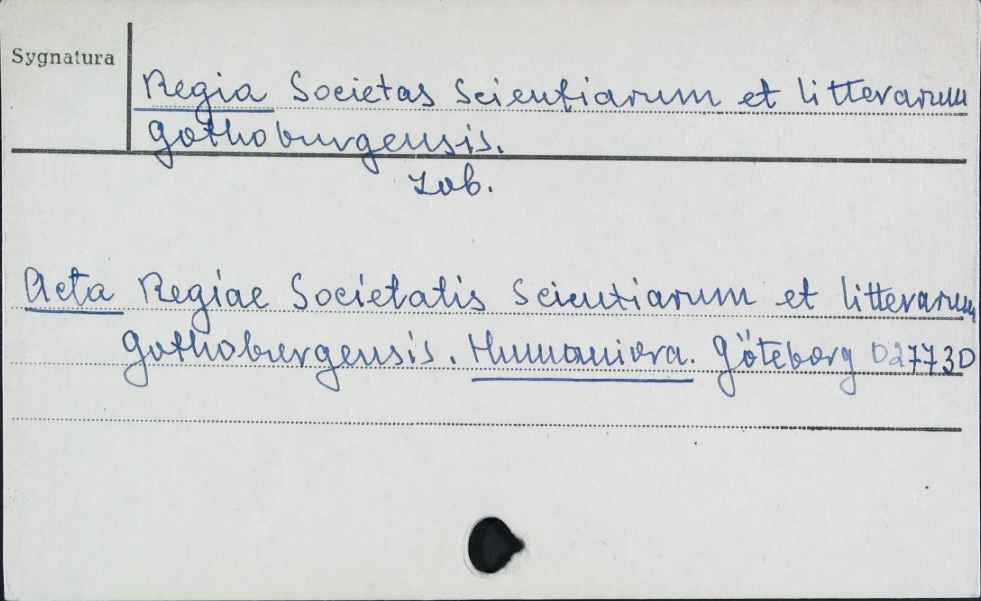 Sygnatura
Regia Societas Scientiarum et litterarum
Gothoburgensis.
Zob.
Acta Regiae Societatis Scientiarum et litterarum
Gothoburgensis. Humaniora. Göteborg D2773D